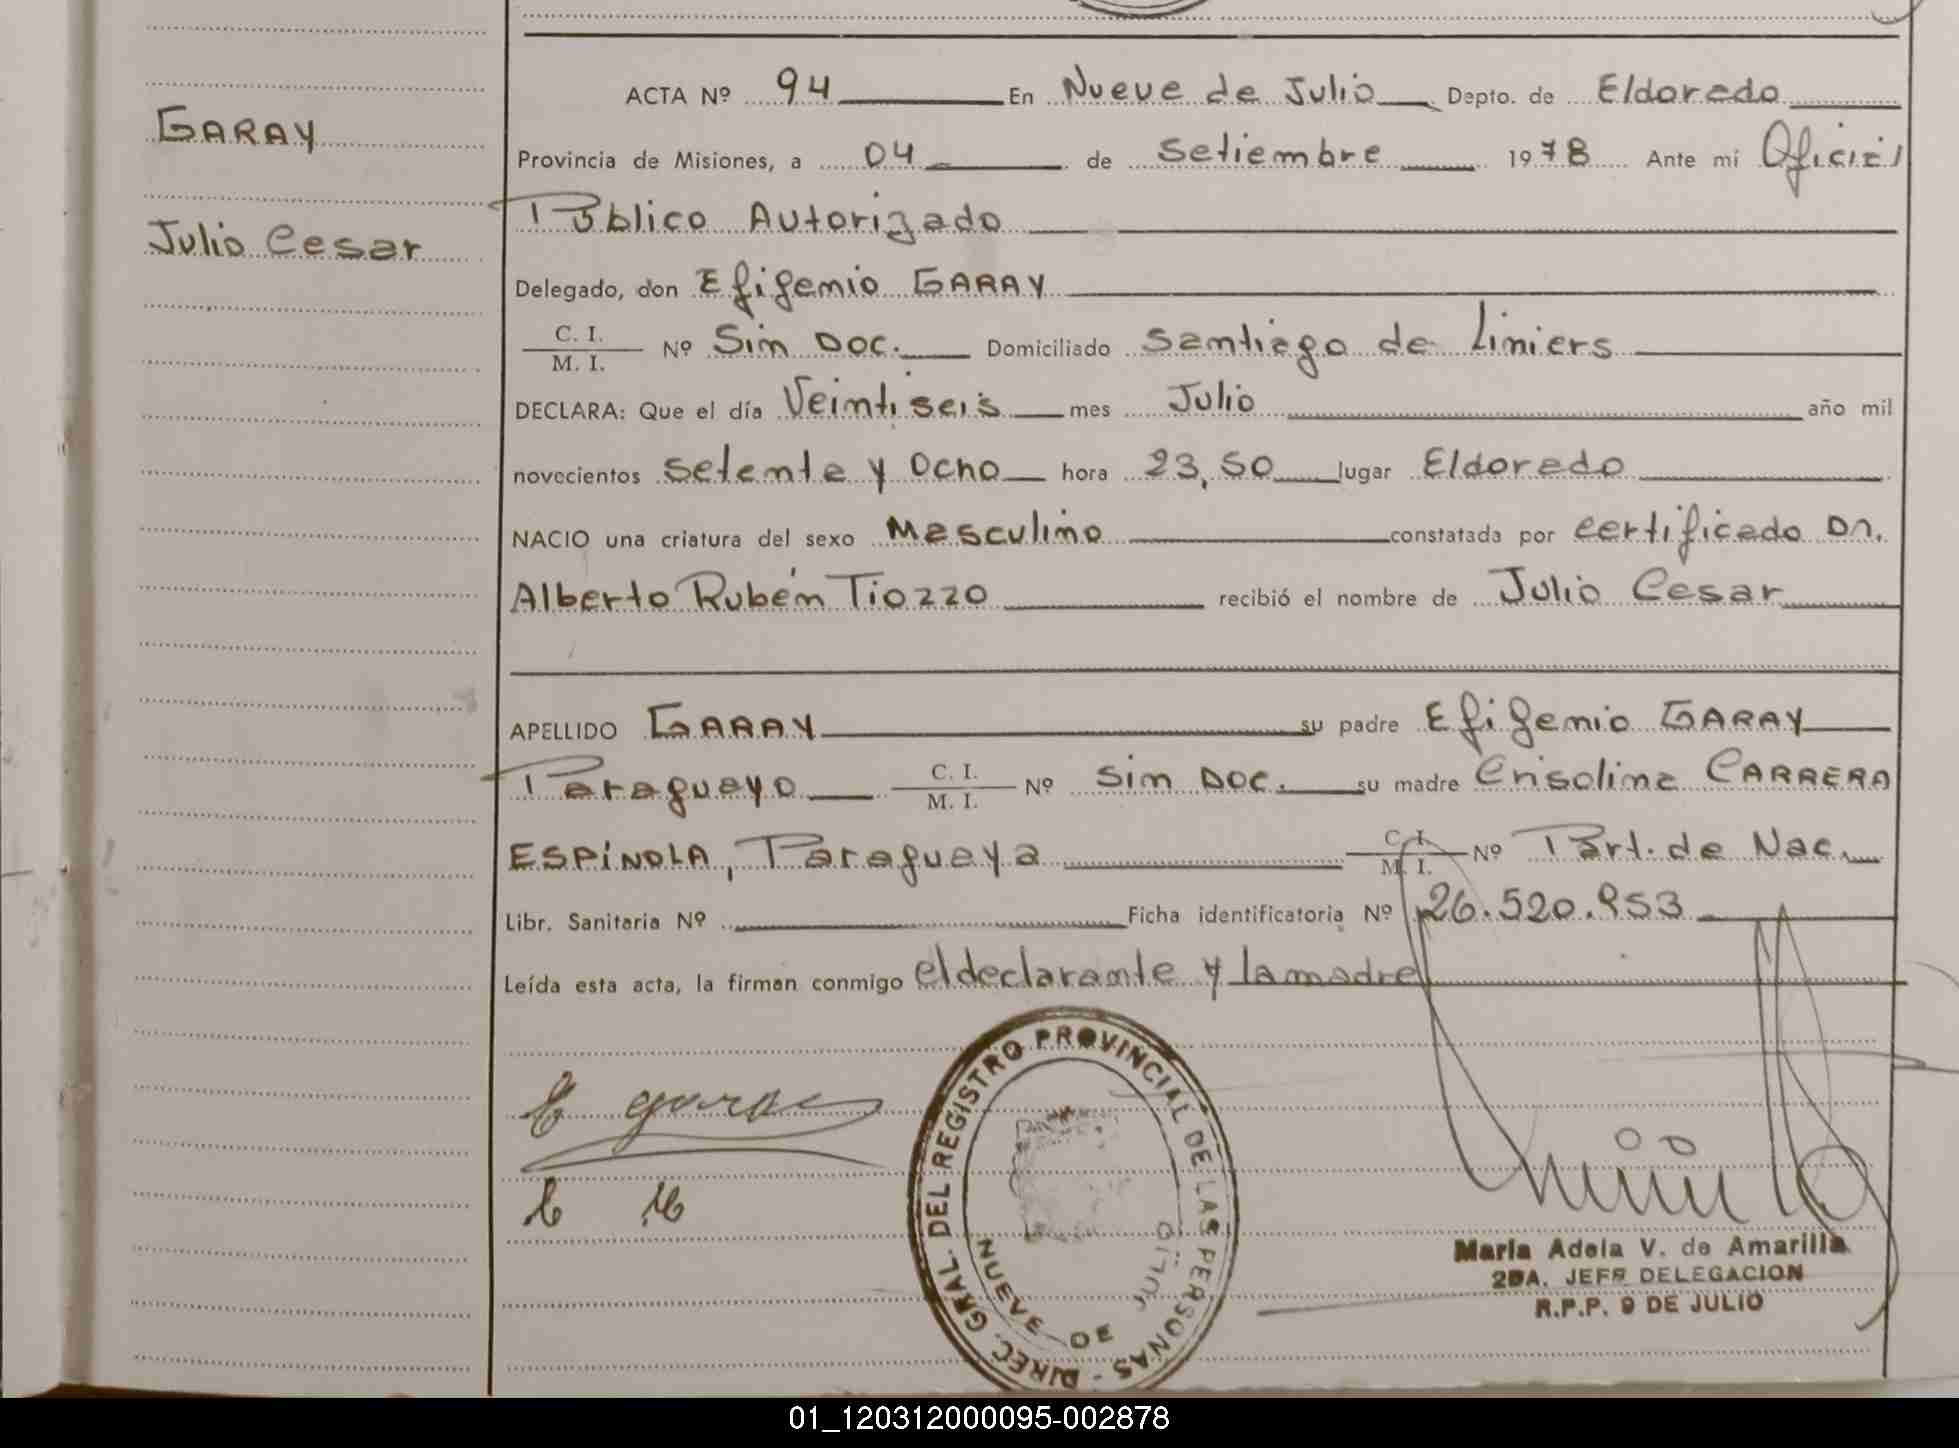 GARAY
Julio Cesar
ACTA Nº 94 En Nueve de Julio Depto. de Eldorado
Provincia de Misiones, a 04 de Setiembre 1978 Ante mí Oficial
Público Autorizado
Delegado, don Efigenio GARAY
C. I.
M. I. Nº Sin Doc. Domiciliado Santiago de Liniers
DECLARA: Que el día Veintiseis mes Julio año mil
novecientos setenta y ocho hora 23,50 lugar Eldorado
NACIO una criatura del sexo Masculino constatada por certificado Dr.
Alberto Rubén Tiozzo recibió el nombre de Julio Cesar
APELLIDO GARAY su padre Efigenio GARAY
Paraguayo C. I. M. I. Nº Sin Doc. su madre Crisolina CARRERA
ESPÍNOLA, Paraguaya C. I. M. I. Nº Part. de Nac.
Libr. Sanitaria Nº Ficha identificatoria Nº 26.520.953
Leída esta acta, la firman conmigo el declarante y la madre
DIREC. GRAL. DEL REGISTRO PROVINCIAL DE LAS PERSONAS -
NUEVE DE JULIO
Maria Adela V. de Amarilla
2DA. JEFE DELEGACION
R.P.P. 9 DE JULIO
01_120312000095-002878